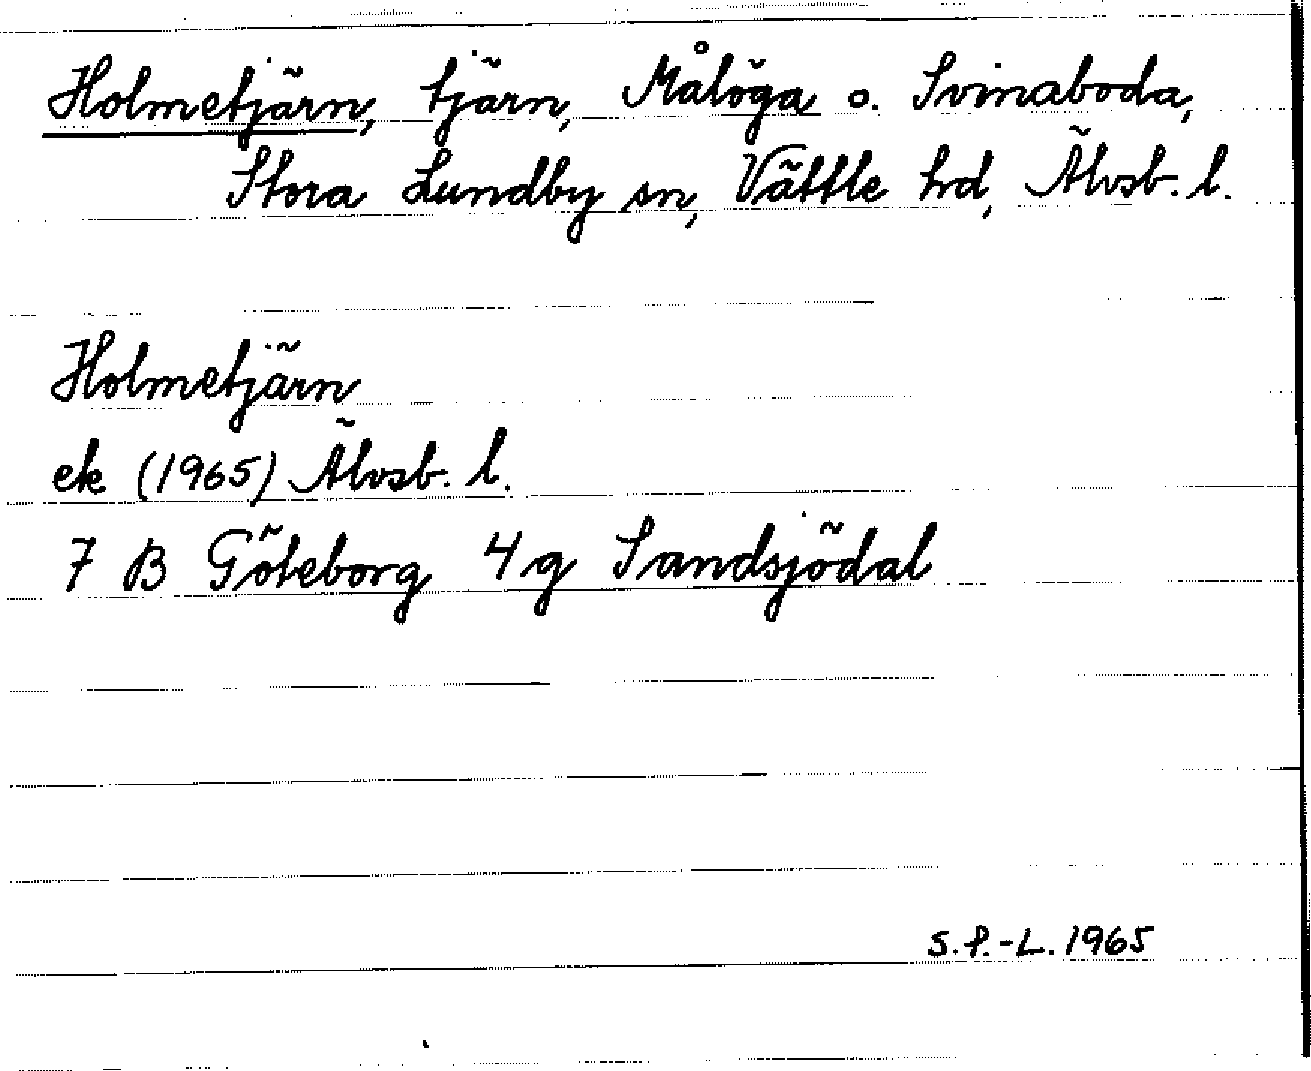 Holmetjärn, tjärn, Målöga o. Svinaboda,
Stora Lundby sn, Vättle hd, Älvsb. l.
Holmetjärn
ek (1965) Älvsb. l.
7 B Göteborg 4g Sandsjödal
S.P.-L. 1965